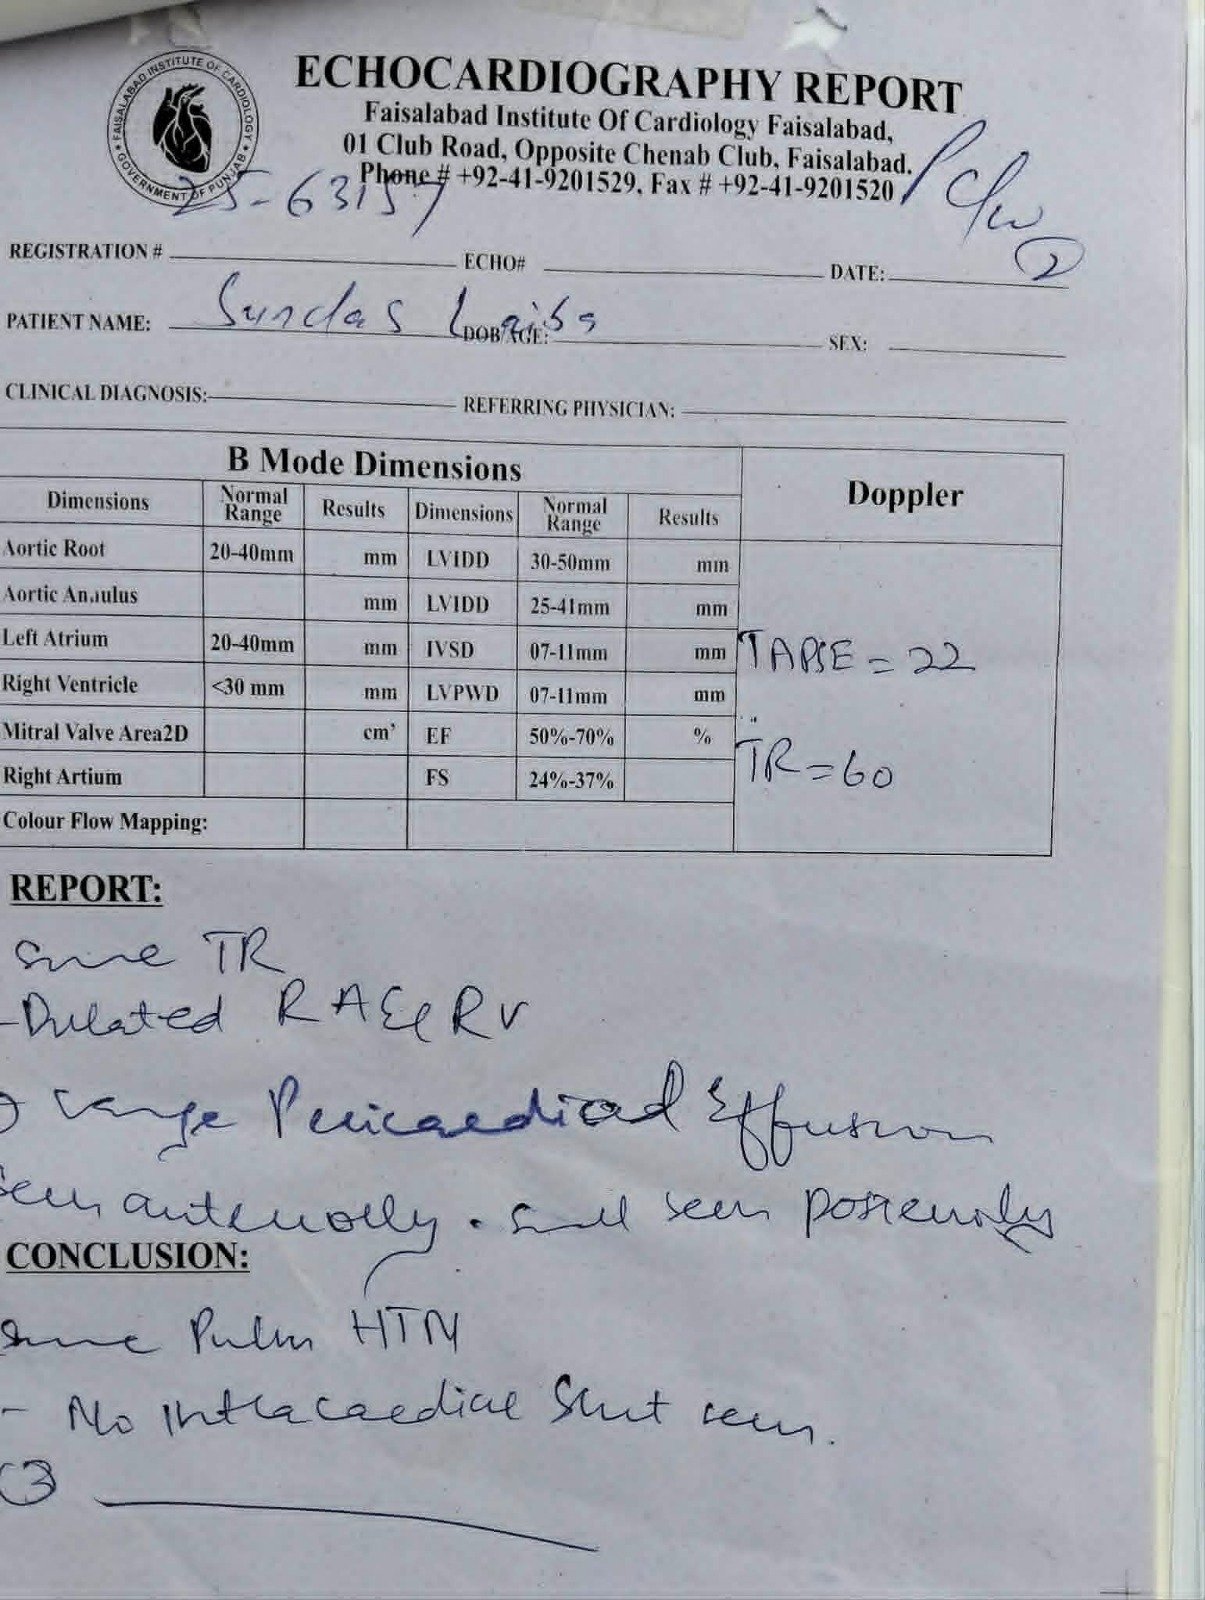 FAISALABAD INSTITUTE OF CARDIOLOGY
GOVERNMENT OF PUNJAB
ECHOCARDIOGRAPHY REPORT
Faisalabad Institute Of Cardiology Faisalabad,
01 Club Road, Opposite Chenab Club, Faisalabad.
Phone # +92-41-9201529, Fax # +92-41-9201520
25-63157
REGISTRATION # ECHO# DATE:
PATIENT NAME: Sundas Laiba DOB/AGE: SEX:
CLINICAL DIAGNOSIS: REFERRING PHYSICIAN:
B Mode Dimensions Doppler
Dimensions Normal Range Results Dimensions Normal Range Results
Aortic Root 20-40mm mm LVIDD 30-50mm mm
Aortic Annulus mm LVIDD 25-41mm mm
Left Atrium 20-40mm mm IVSD 07-11mm mm
TAPSE = 22
Right Ventricle <30 mm mm LVPWD 07-11mm mm
Mitral Valve Area2D cm² EF 50%-70% %
TR = 60
Right Artium FS 24%-37%
Colour Flow Mapping:
REPORT:
TR
- Dilated RA & RV
Large Pericardial Effusion
seen anteriorly. small seen posteriorly
CONCLUSION:
Pulm HTN
- No intracardiac Shut seen.